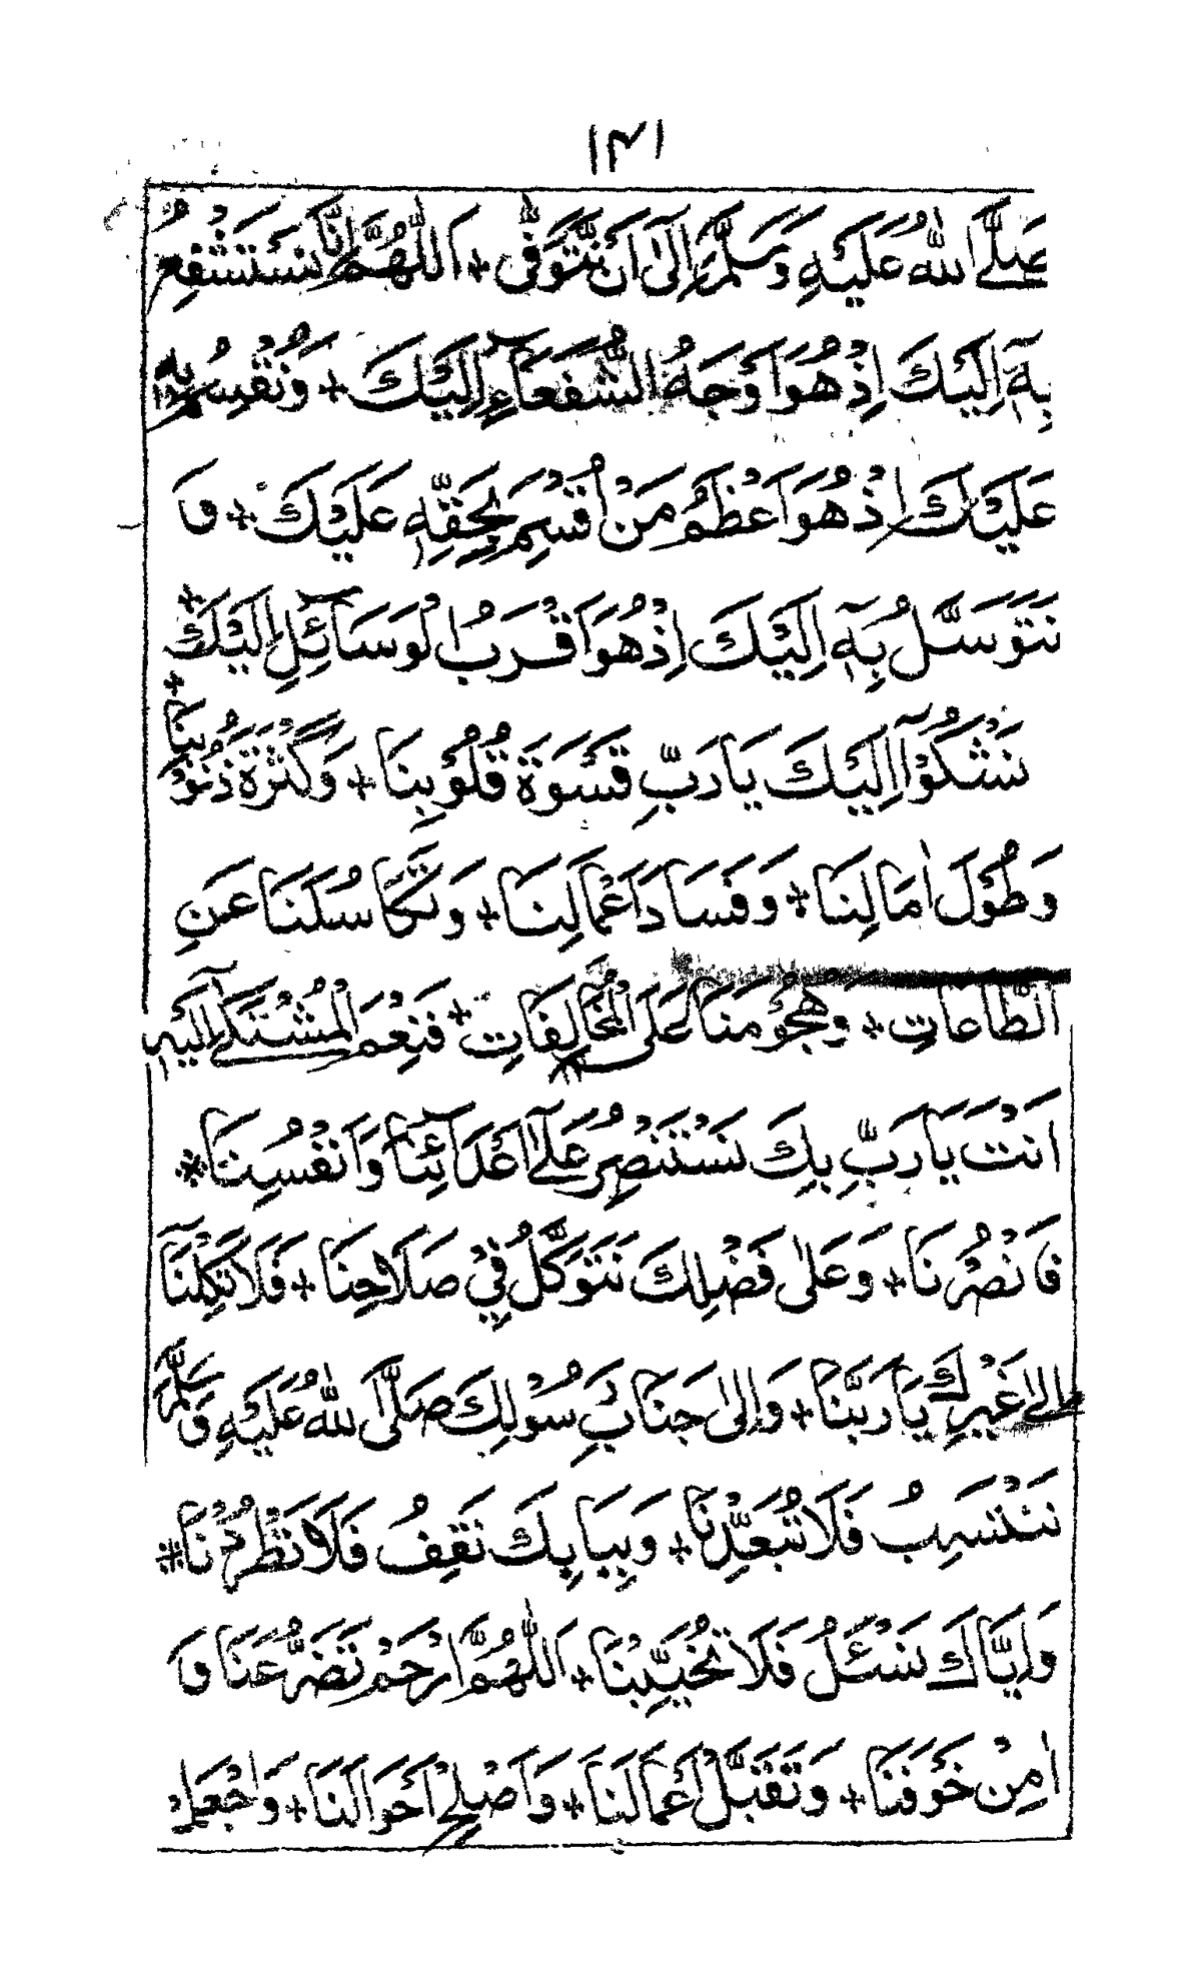 ۱۴۱
صَلَّى اللّٰهُ عَلَيْهِ وَسَلَّمَ اِلٰى اَنْ نَّتَوَفّٰى + اَللّٰهُمَّ اِنَّا نَسْتَشْفِعُ
بِهٖٓ اِلَيْكَ اِذْ هُوَ اَوْجَهُ الشُّفَعَآءِ اِلَيْكَ + وَنُقْسِمُ بِهٖ
عَلَيْكَ اِذْ هُوَ اَعْظَمُ مَنْ اُقْسِمَ بِحَقِّهٖ عَلَيْكَ + وَ
نَتَوَسَّلُ بِهٖٓ اِلَيْكَ اِذْ هُوَ اَقْرَبُ الْوَسَآئِلِ اِلَيْكَ +
نَشْكُوْآ اِلَيْكَ يَا رَبِّ قَسْوَةَ قُلُوْبِنَا + وَكَثْرَةَ ذُنُوْبِنَا +
وَطُوْلَ اٰمَالِنَا + وَفَسَادَ اَعْمَالِنَا + وَتَكَاسُلَنَا عَنِ
الطَّاعَاتِ + وَهُجُوْمَنَا عَلَى الْمُخَالِفَاتِ + فَنِعْمَ الْمُشْتَكٰٓى اِلَيْهِ
اَنْتَ يَا رَبِّ بِكَ نَسْتَنْصِرُ عَلٰٓى اَعْدَآئِنَا وَاَنْفُسِنَا *
فَانْصُرْنَا + وَعَلٰى فَضْلِكَ نَتَوَكَّلُ فِيْ صَلَاحِنَا + فَلَا تَكِلْنَآ
اِلٰى غَيْرِكَ يَا رَبَّنَا + وَاِلٰى جَنَابِ رَسُوْلِكَ صَلَّى اللّٰهُ عَلَيْهِ وَسَلَّمَ
نَنْتَسِبُ فَلَا تُبَعِّدْنَا + وَبِبَابِكَ نَقِفُ فَلَا تَطْرُدْنَا *
وَاِيَّاكَ نَسْئَلُ فَلَا تُخَيِّبْنَا + اَللّٰهُمَّ ارْحَمْ تَضَرُّعَنَا وَ
اٰمِنْ خَوْفَنَا + وَتَقَبَّلْ اَعْمَالَنَا + وَاَصْلِحْ اَحْوَالَنَا + وَاجْعَلْ